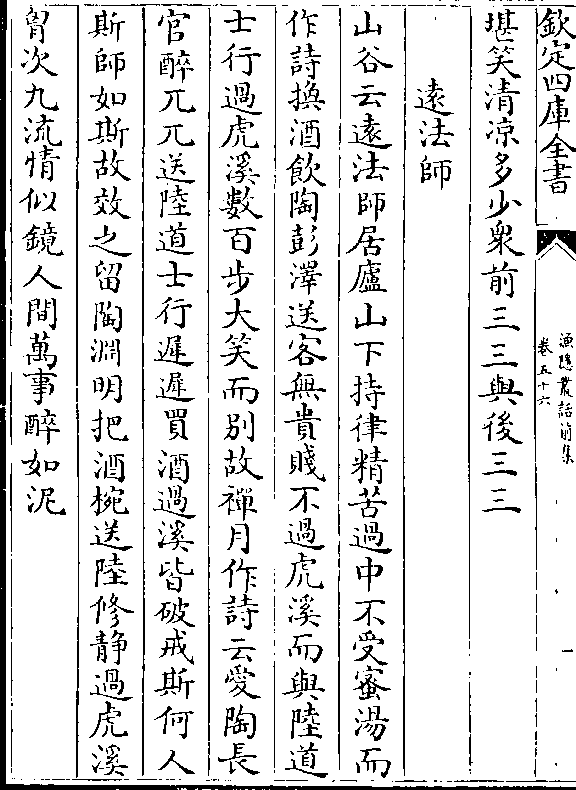 欽定四庫全書
漁隱叢話前集
卷五十六
一
堪笑清凉多少衆前三三與後三三
遠法師
山谷云遠法師居廬山下持律精苦過中不受蜜湯而
作詩換酒飲陶彭澤送客無貴賤不過虎溪而與陸道
士行過虎溪數百步大笑而别故禪月作詩云愛陶長
官醉兀兀送陸道士行遲遲買酒過溪皆破戒斯何人
斯師如斯故效之留陶淵明把酒椀送陸修静過虎溪
胷次九流情似鏡人間萬事醉如泥